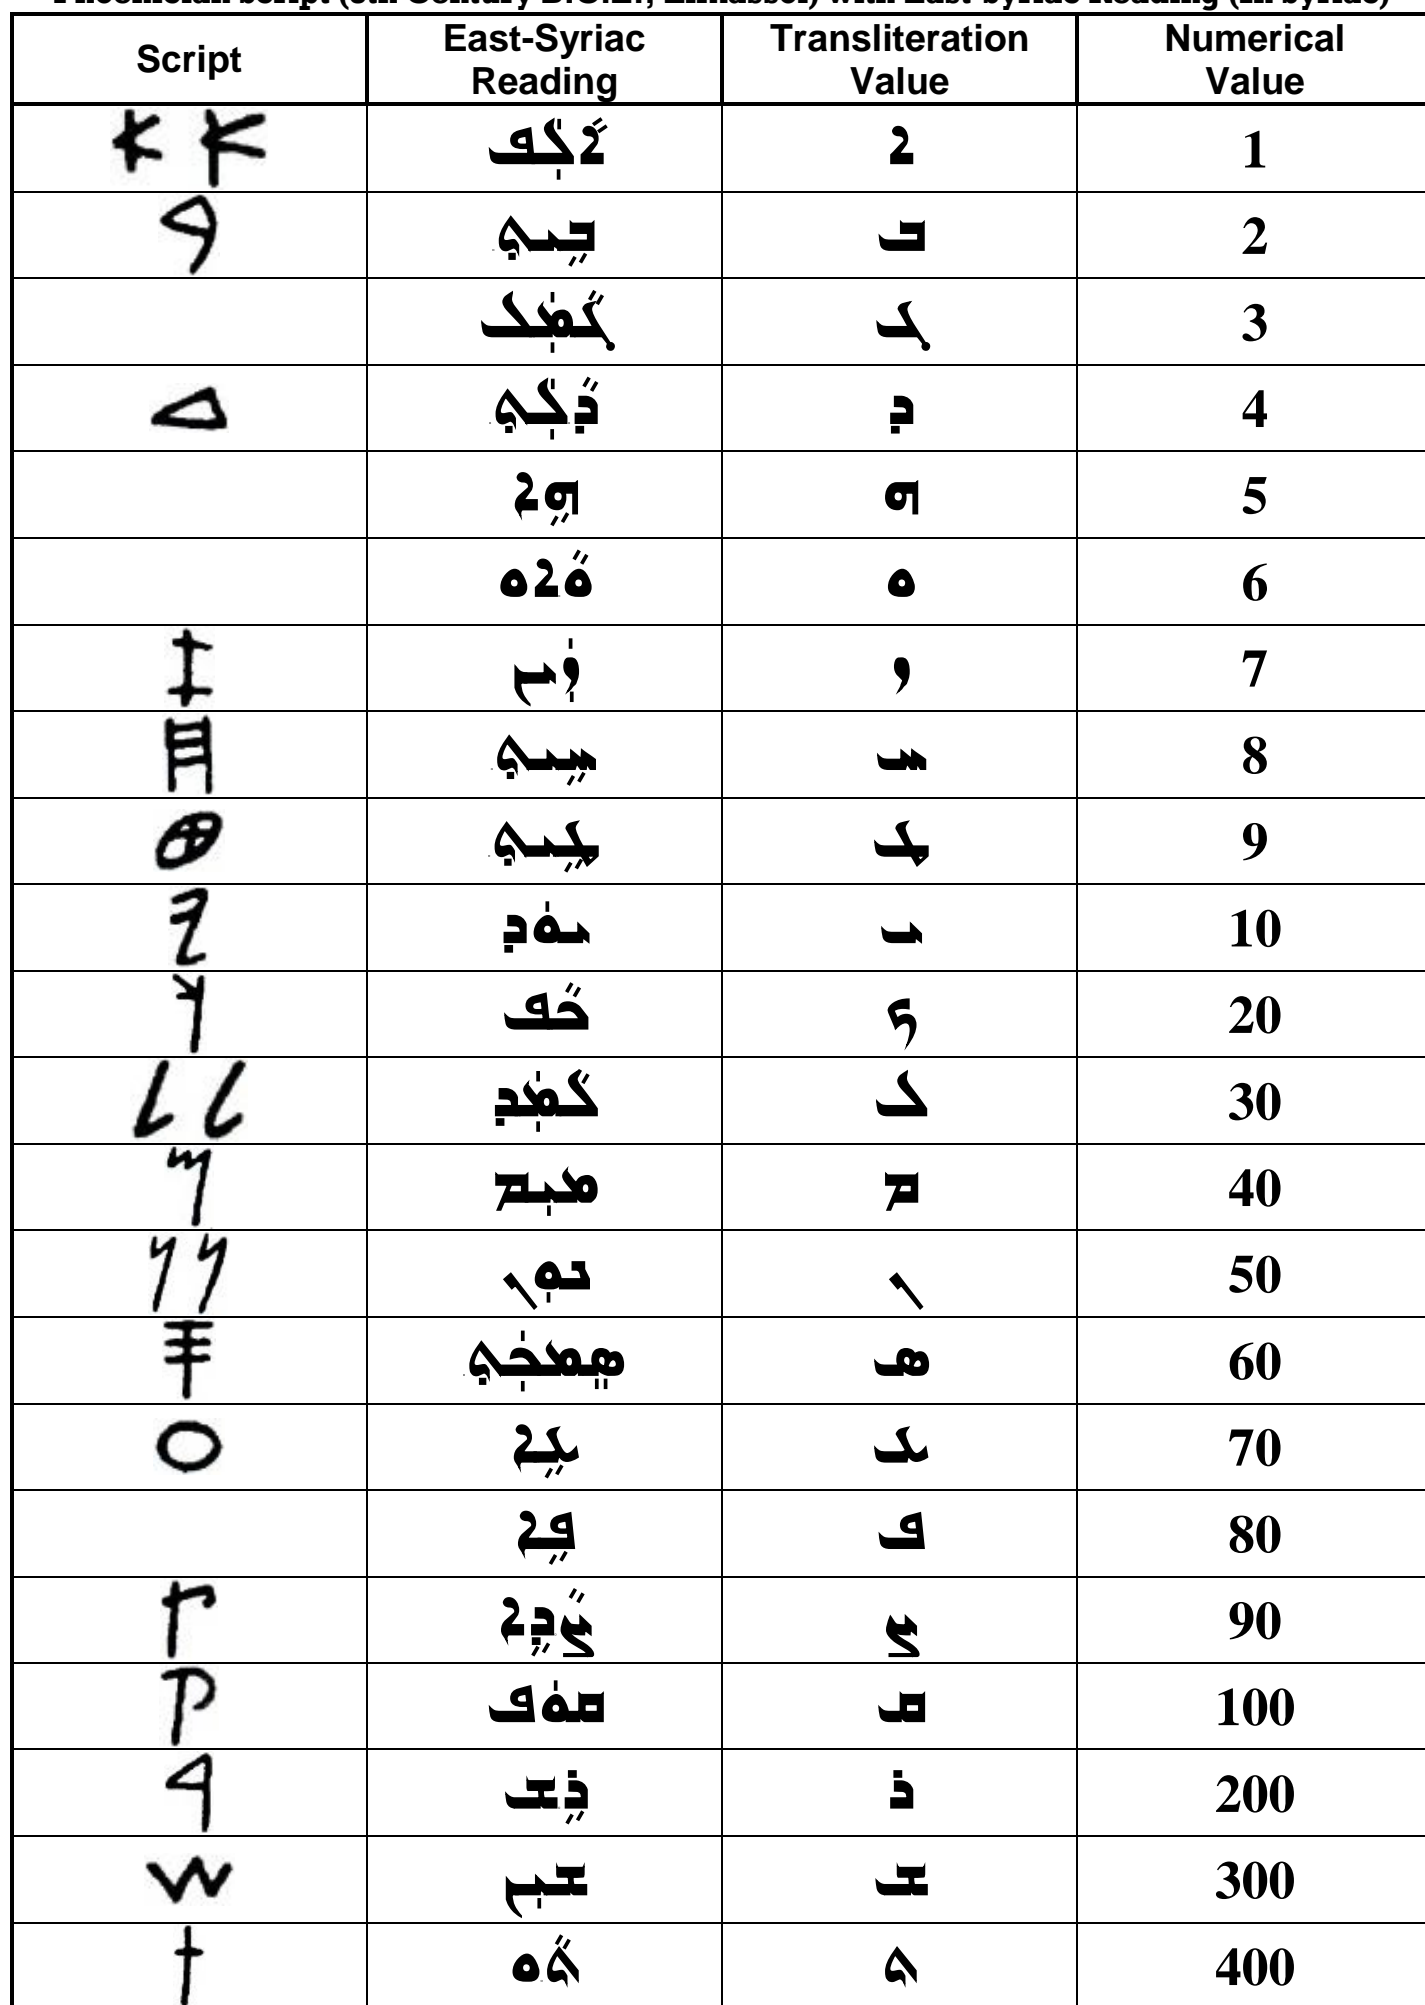 Script East-Syriac Reading Transliteration Value Numerical Value
𐤀 𐤀 ܐܵܠܲܦ ܐ 1
𐤁 ܒܹܝܬ݂ ܒ 2
ܓܵܡܲܠ ܓ 3
𐤃 ܕܵܠܲܬ݂ ܕ 4
ܗܹܐ ܗ 5
ܘܵܐܘ ܘ 6
𐤆 ܙܲܝܢ ܙ 7
𐤇 ܚܹܝܬ݂ ܚ 8
𐤈 ܛܹܝܬ݂ ܛ 9
𐤉 ܝܘܿܕ ܝ 10
𐤊 ܟܵܦ ܟ 20
𐤋 𐤋 ܠܵܡܲܕ ܠ 30
𐤌 ܡܝܼܡ ܡ 40
𐤍 𐤍 ܢܘܼܢ ܢ 50
𐤎 ܣܸܡܟܲܬ݂ ܣ 60
𐤏 ܥܹܐ ܥ 70
ܦܹܐ ܦ 80
𐤑 ܨܵܕܹܐ ܨ 90
𐤒 ܩܘܿܦ ܩ 100
𐤓 ܪܹܫ ܪ 200
𐤔 ܫܝܼܢ ܫ 300
𐤕 ܬܵܘ ܬ 400